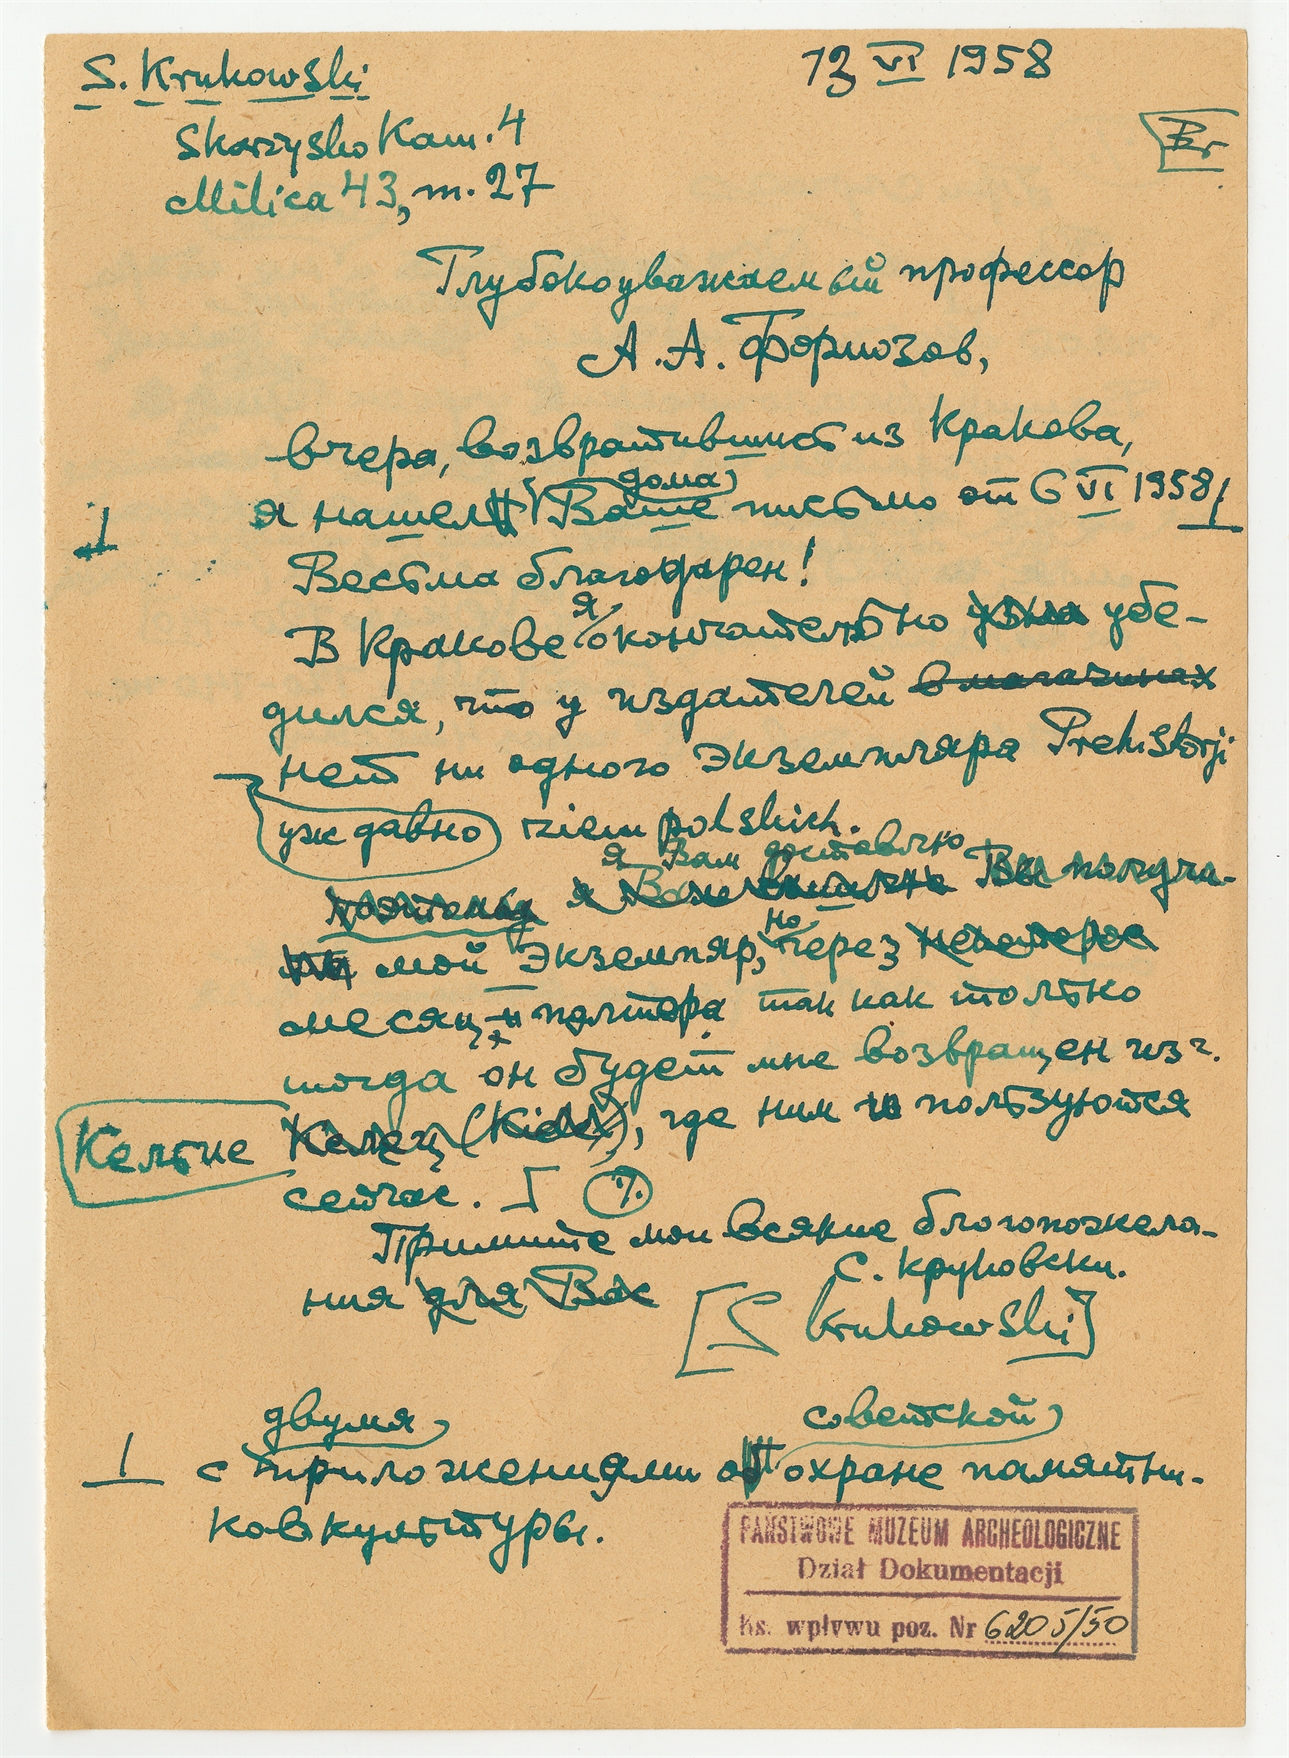 S. Krukowski
13 VI 1958
Br
Skarżysko Kam. 4
Milica 43, m. 27
Глубокоуважаемый профессор
А. А. Формозов,
вчера, возвратившись из Кракова,
дома
я нашел Ваше письмо от 6 VI 1958
1
Весьма благодарен!
я
В Кракове окончательно убе-
дился, что у издателей в магазинах
нет ни одного экземпляра Prehistorji
уж давно ziem polskich.
я Вам доставлю
я Вам вышлю Вы получи-
мой экземпяр, но через некоторое
месяц - полтора так как только
тогда он будет мне возвращен из г.
Кельце Келец (Kielc), где ним пользуются
сейчас.
Примите мои всякие благопожела-
ния для Вас
С. Круковски.
[S Krukowski]
двумя советской
1 с приложениями об охране памятни-
ков культуры.
PAŃSTWOWE MUZEUM ARCHEOLOGICZNE
Dział Dokumentacji
Ks. wpływu poz. Nr 6205/50